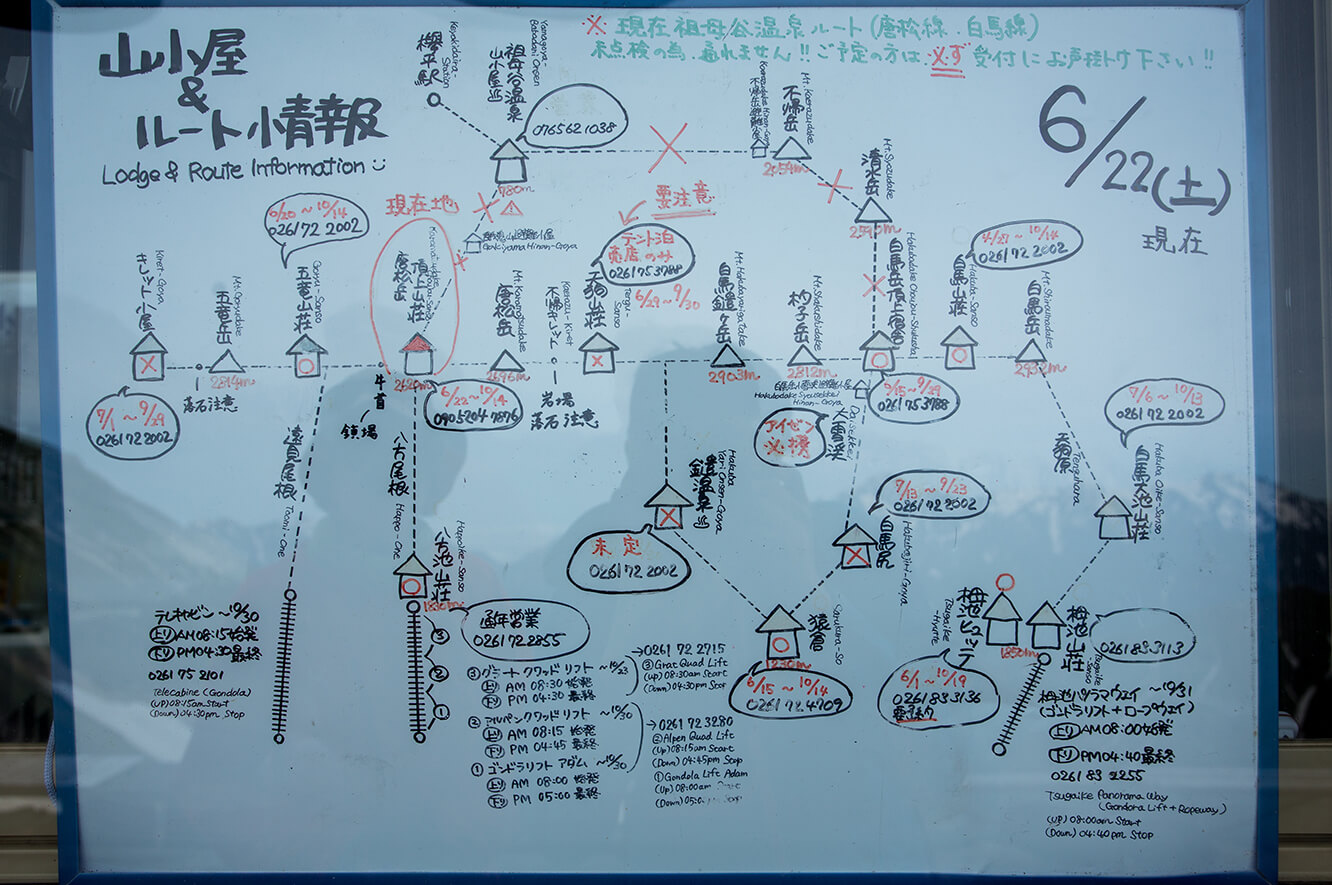 山小屋
&
ルート情報
Lodge & Route Information
× 現在 祖母谷温泉ルート(唐松線・白馬線)
未点検の為、通れません!! ご予定の方は必ず受付にお声掛け下さい!!
6/22(土)
現在
欅平駅
Keyakidaira-Station
祖母谷温泉
山小屋
Yamagoya
Babadani Onsen
0765621038
780m
不帰岳避難小屋
不帰岳
Mt. Kaerazudake
2054m
清水岳
Mt. Syozudake
現在地
要注意
キレット小屋
Kiret-Goya
7/1~9/29
0261 72 2002
落石注意
五竜岳
Mt. Goryudake
2814m
五竜山荘
Goryu-Sanso
6/20~10/14
0261 72 2002
遠見尾根
Toomi-One
牛首
鎖場
唐松岳
頂上山荘
2620m
6/22~10/14
09052047876
八方尾根
Happo-One
唐松岳
Mt. Karamatsudake
2696m
不帰キレット
Kaerazu-Kiret
岩場
落石注意
天狗山荘
Tengu-Sanso
テント泊
売店のみ
0261753788
6/29~9/30
白馬鑓ヶ岳
Mt. Hakubayarigatake
2903m
杓子岳
Mt. Shakushidake
2812m
白馬岳頂上宿舎
Hakubadake Chouzyou-Shukusha
6/15~9/29
0261753788
白馬山荘
Hakuba-Sanso
4/27~10/14
0261722002
白馬岳
Mt. Shiroumadake
2932m
Hinan-Goya
大雪渓
Daisekkei
アイゼン
必携
鑓温泉
Hakuba
Yari Onsen-Goya
未定
0261 72 2002
白馬尻
Hakubajiri-Goya
7/13~9/23
0261 72 2002
猿倉
Sarukura-So
1230m
6/15~10/14
0261 72 4709
天狗原
Tenguhara
白馬大池山荘
Hakuba Oike-Sanso
7/6~10/13
0261 72 2002
栂池ヒュッテ
Tsugaike-Hyutte
6/1~10/19
0261833136
栂池山荘
Tsugaike-Sanso
1850m
0261833113
八方池山荘
Happoike-Sanso
1830m
通年営業
0261 72 2855
③
②
①
テレキャビン ~10/30
上り AM 08:15 始発
下り PM 04:30 最終
0261 75 2101
Telecabine (Gondola)
(UP) 08:15am Start
(Down) 04:30pm Stop
③ グラートクワッドリフト ~10/23
上り AM 08:30 始発
下り PM 04:30 最終
② アルペンクワッドリフト ~10/30
上り AM 08:15 始発
下り PM 04:45 最終
① ゴンドラリフト アダム ~10/30
上り AM 08:00 始発
下り PM 05:00 最終
→0261 72 2715
③ Grat Quad Lift
(Up) 08:30am Start
(Down) 04:30pm Stop
→0261 72 3280
② Alpen Quad Lift
(Up) 08:15am Start
(Down) 04:45pm Stop
① Gondola Lift Adam
(Up) 08:00am Start
(Down) 05:00pm Stop
栂池パノラマウェイ ~10/31
(ゴンドラリフト+ロープウェイ)
上り AM 08:00 始発
下り PM 04:40 最終
0261 83 2255
Tsugaike Panorama Way
(Gondora Lift + Ropeway)
(UP) 08:00am Start
(Down) 04:40pm Stop